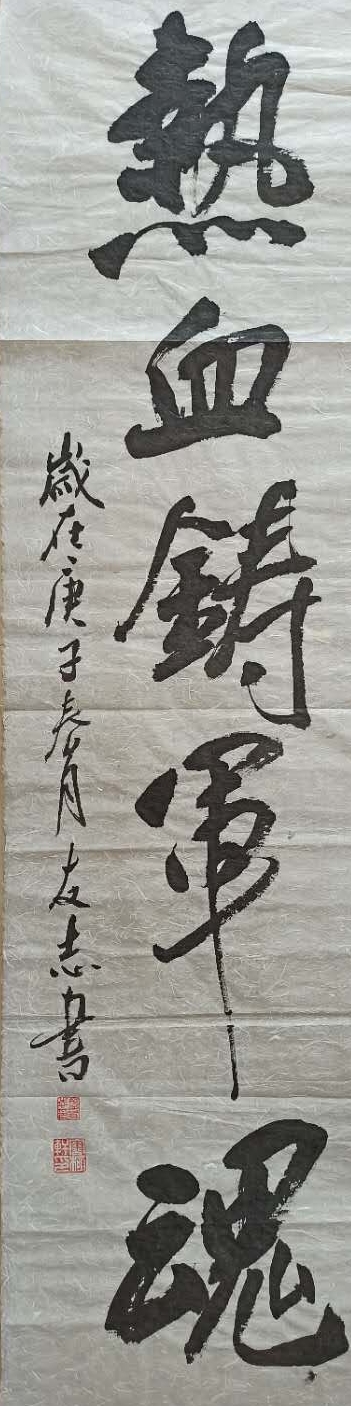 熱血鑄軍魂
歲在庚子春月友志書